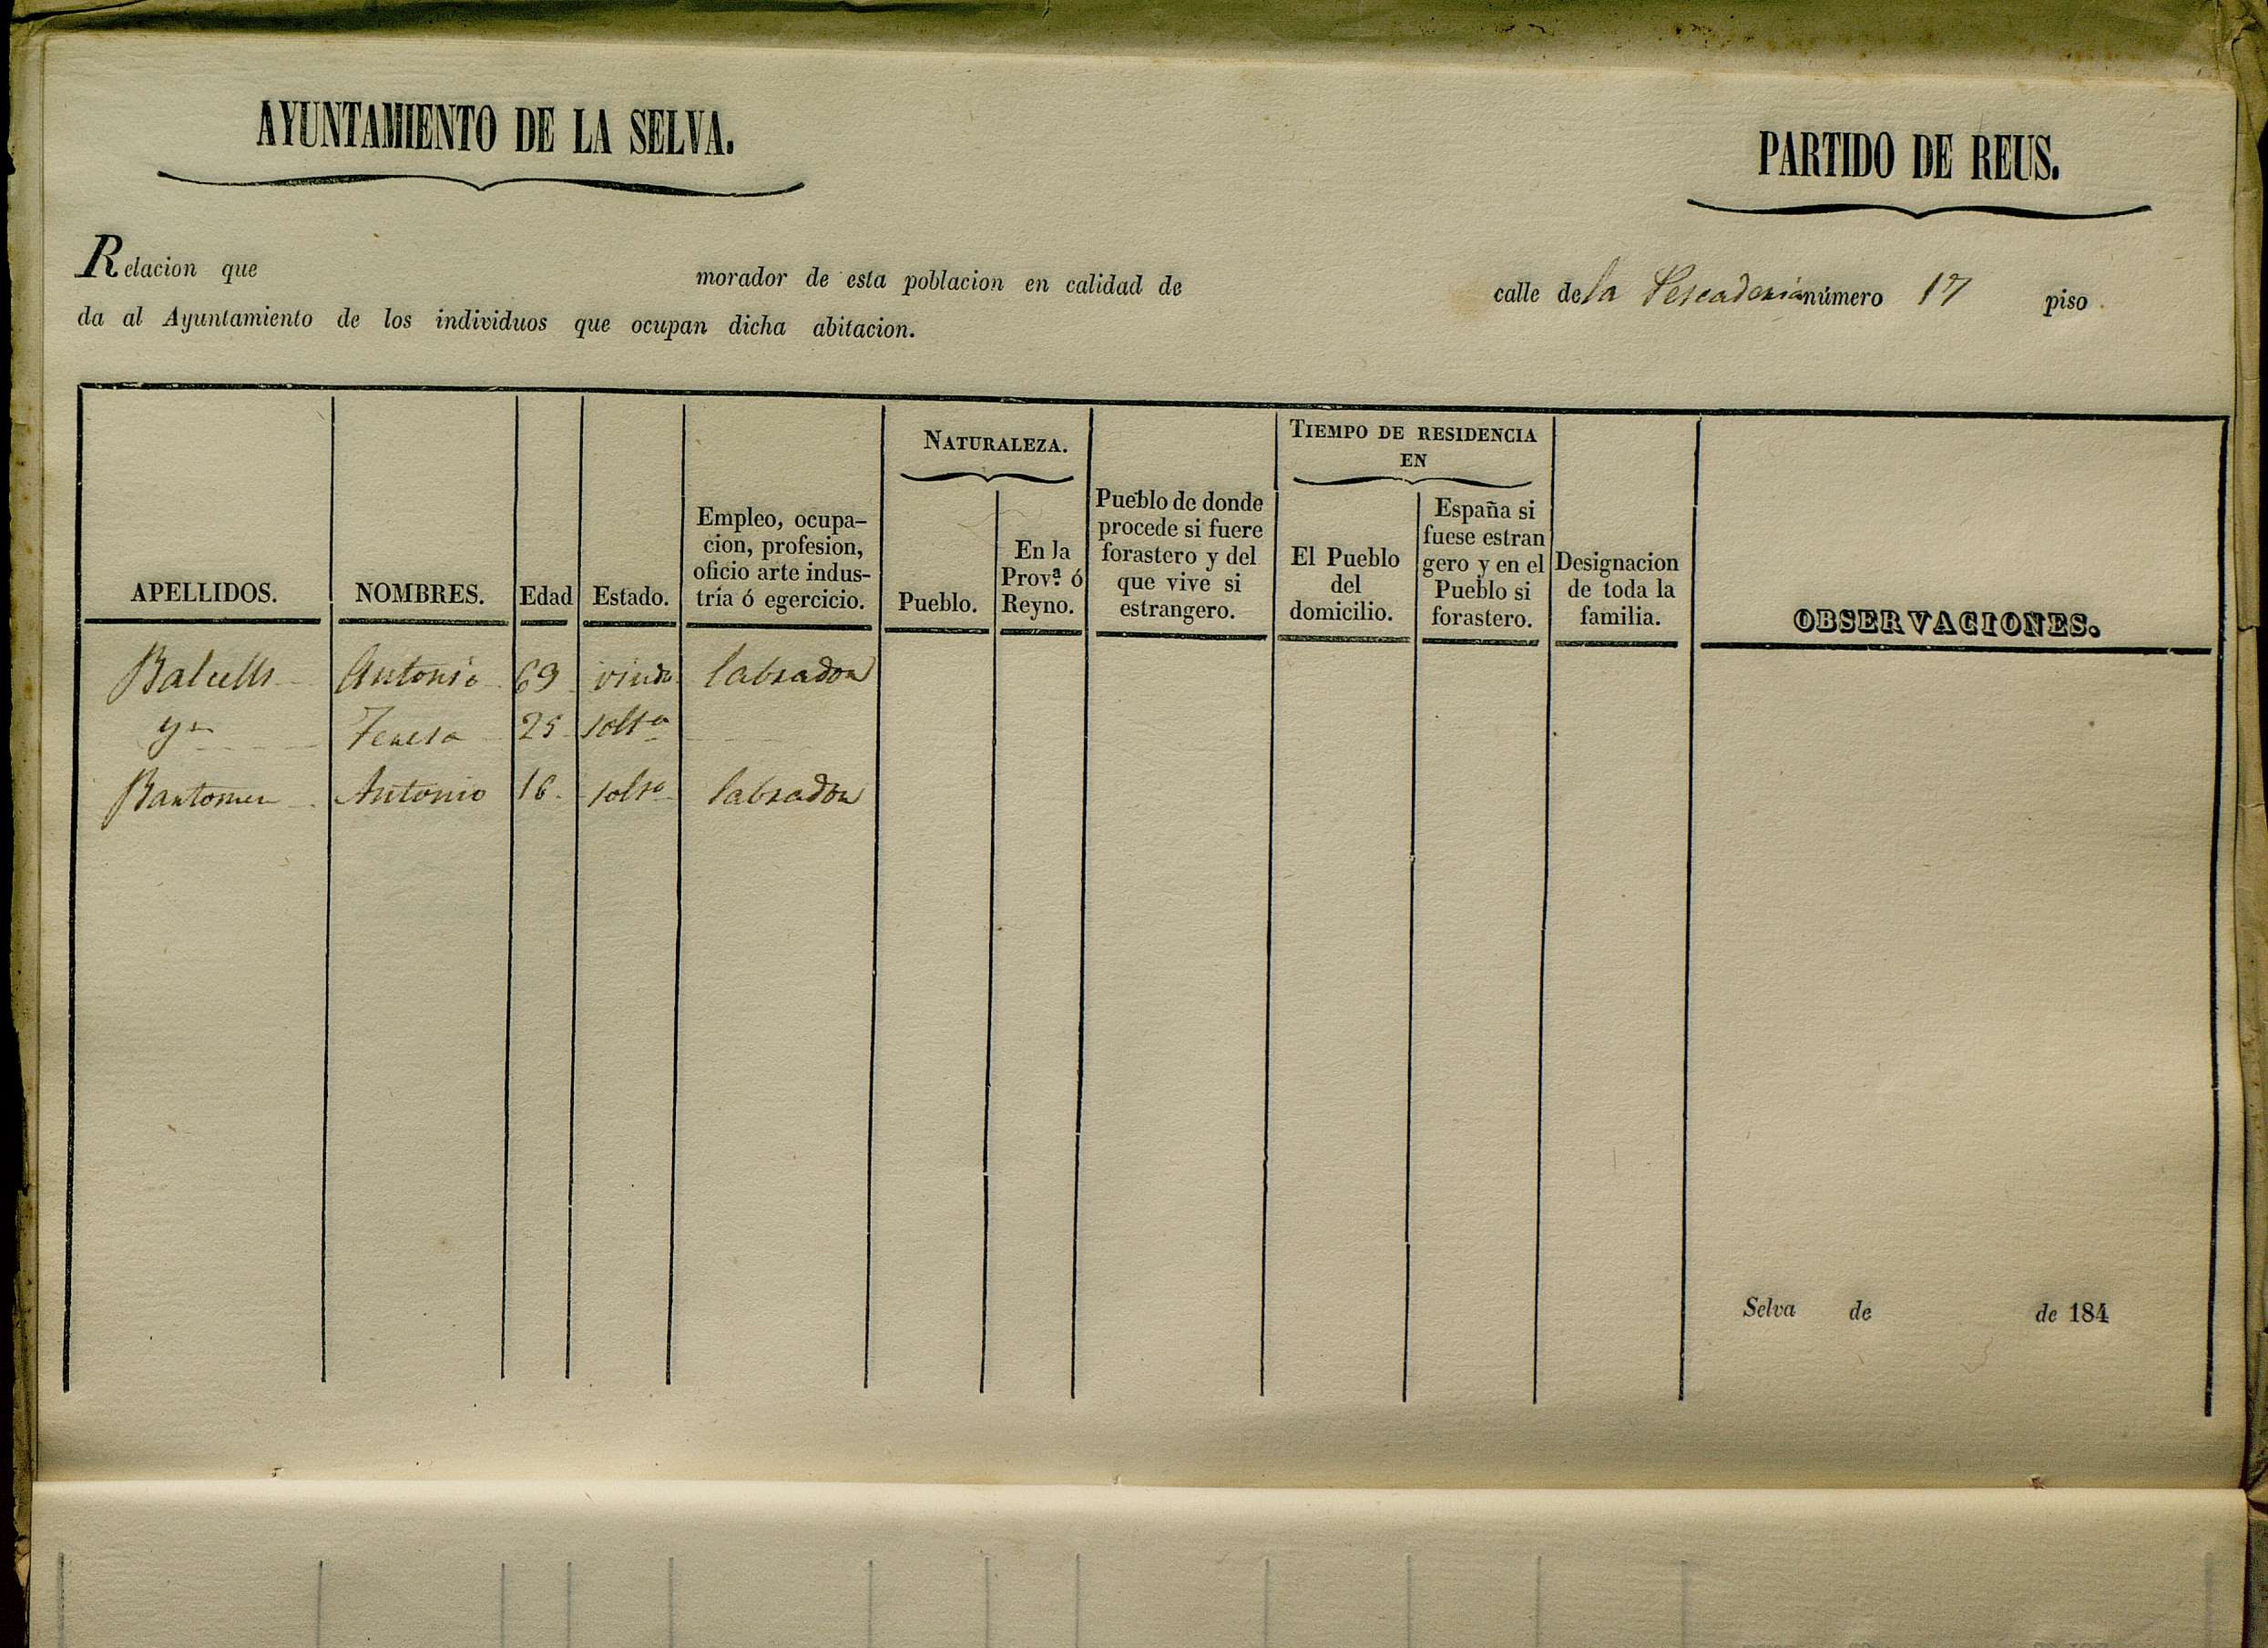 AYUNTAMIENTO DE LA SELVA.
PARTIDO DE REUS.
Relacion que morador de esta poblacion en calidad de calle de la Pescaderia número 17 piso
da al Ayuntamiento de los individuos que ocupan dicha abitacion.
NATURALEZA.
TIEMPO DE RESIDENCIA
EN
APELLIDOS.
NOMBRES.
Edad
Estado.
Empleo, ocupa-
cion, profesion,
oficio arte indus-
tria ó egercicio.
Pueblo.
En la
Prov.ª ó
Reyno.
Pueblo de donde
procede si fuere
forastero y del
que vive si
estrangero.
El Pueblo
del
domicilio.
España si
fuese estran
gero y en el
Pueblo si
forastero.
Designacion
de toda la
familia.
OBSERVACIONES.
Balcells Antonio 69 viudo labrador
Yn Teresa 25 solta
Bartomeu Antonio 16 solto labrador
Selva de de 184